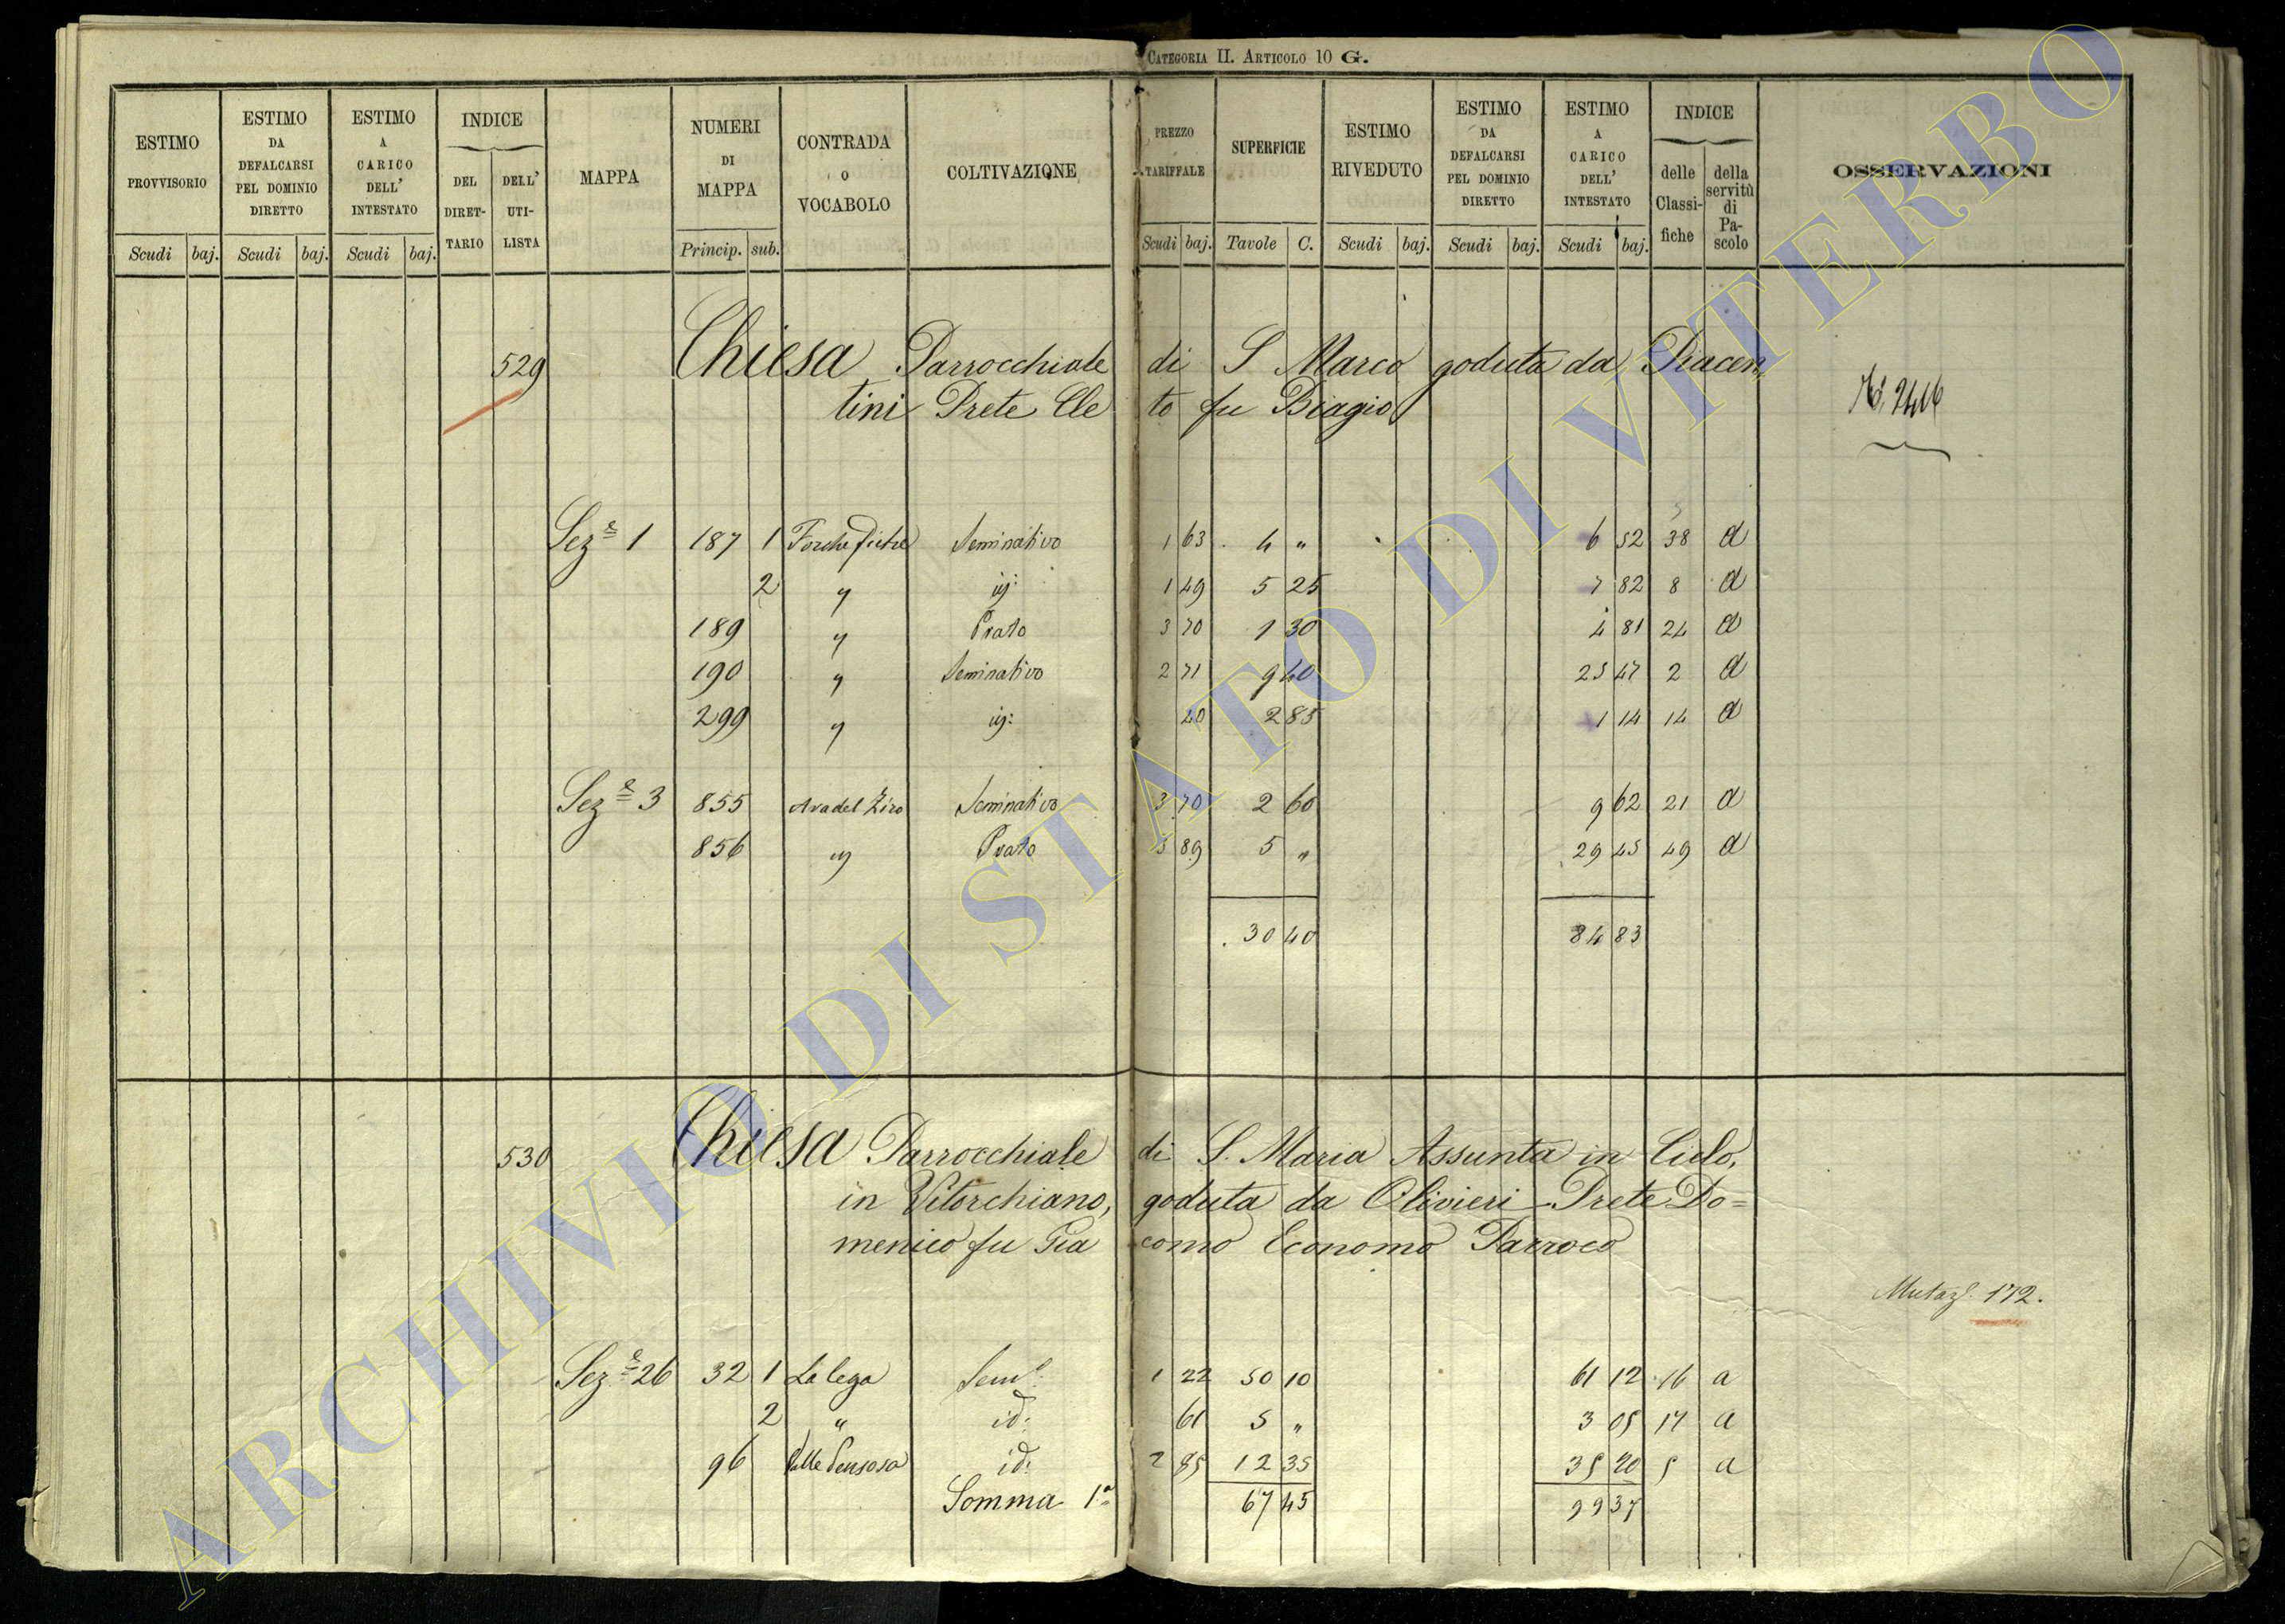 CATEGORIA II. ARTICOLO 10 G.
ESTIMO PROVVISORIO Scudi baj.
ESTIMO DA DEFALCARSI PEL DOMINIO DIRETTO Scudi baj.
ESTIMO A CARICO DELL' INTESTATO Scudi baj.
INDICE DEL DIRET-TARIO DELL' UTI-LISTA
MAPPA
NUMERI DI MAPPA Princip. sub.
CONTRADA O VOCABOLO
COLTIVAZIONE
PREZZO TARIFFALE Scudi baj.
SUPERFICIE Tavole C.
ESTIMO RIVEDUTO Scudi baj.
ESTIMO DA DEFALCARSI PEL DOMINIO DIRETTO Scudi baj.
ESTIMO A CARICO DELL' INTESTATO Scudi baj.
INDICE delle Classi-fiche della servitù di Pa-scolo
OSSERVAZIONI
529 Chiesa Parrocchiale di S Marco goduta da Piacen
tini Prete Cle to fu Biagio
Sez.e 1 187 1 Seminativo 1 63 4 " 6 52 38 a
2 " id: 1 49 5 25 7 82 8 a
189 " Prato 3 70 1 30 4 81 24 a
190 " Seminativo 2 71 9 40 25 47 2 a
299 " id: 40 2 85 1 14 14 a
Sez.e 3 855 Ara del Ziro Seminativo 3 70 2 60 9 62 21 a
856 " Prato 5 89 5 " 29 45 49 a
30 40 84 83
530 Chiesa Parrocchiale di S. Maria Assunta in Cielo,
in Vitorchiano, goduta da Olivieri Prete Do=
menico fu Gia como Economo Parroco
Mutaz. 172.
Sez.e 26 32 1 La lega Sem. 1 22 50 10 61 12 16 a
2 " id: 61 5 " 3 05 17 a
96 Valle id: 2 85 12 35 35 20 5 a
Somma 1a 67 45 99 37
ARCHIVIO DI STATO DI VITERBO